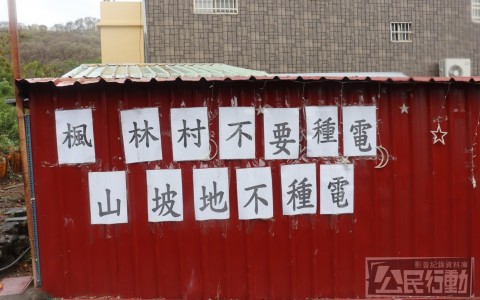 楓林村不要種電
山坡地不種電
影音紀錄資料庫
公民行動